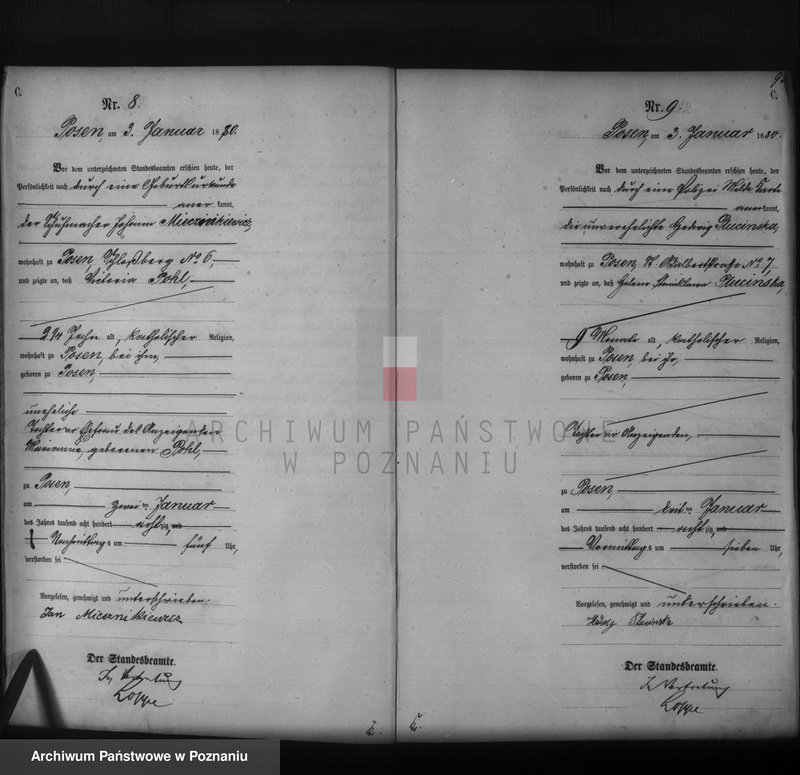 C.
Nr. 8.
Posen, am 3. Januar 1880.
Vor dem unterzeichneten Standesbeamten erschien heute, der
Persönlichkeit nach durch eine Geburtsurkunde
aner kannt,
der Schuhmacher Johann Miecznikiewicz,
wohnhaft zu Posen, Schloßberg No 6,
und zeigte an, daß Victoria Pohl,
2 1/4 Jahr alt, katholischer Religion,
wohnhaft zu Posen, bei ihm,
geboren zu Posen,
uneheliche
Tochter der Ehefrau des Anzeigenden
Marianne, geborenen Pohl,
zu Posen,
am zwei ten Januar
des Jahres tausend acht hundert achtzig
Nachmittags um fünf Uhr,
verstorben sei
Vorgelesen, genehmigt und unterschrieben.
Jan Miecznikiewicz
Der Standesbeamte.
In Vertretung
Loppe
9.
C.
Nr. 9.
Posen, am 3. Januar 1880.
Vor dem unterzeichneten Standesbeamten erschien heute, der
Persönlichkeit nach durch eine Polizei Melde Karte
aner kannt,
die unverehelichte Hedwig Plucinska,
wohnhaft zu Posen, St. Adalbertstrasse No 7,
und zeigte an, daß Helena Stanislawa Plucinska,
9 Monate alt, katholischer Religion,
wohnhaft zu Posen, bei ihr,
geboren zu Posen,
Tochter der Anzeigenden,
zu Posen,
am drit ten Januar
des Jahres tausend acht hundert achtzig
Vormittags um sieben Uhr,
verstorben sei
Vorgelesen, genehmigt und unterschrieben.
Der Standesbeamte.
In Vertretung
Loppe
ARCHIWUM PAŃSTWOWE
W POZNANIU
Archiwum Państwowe w Poznaniu